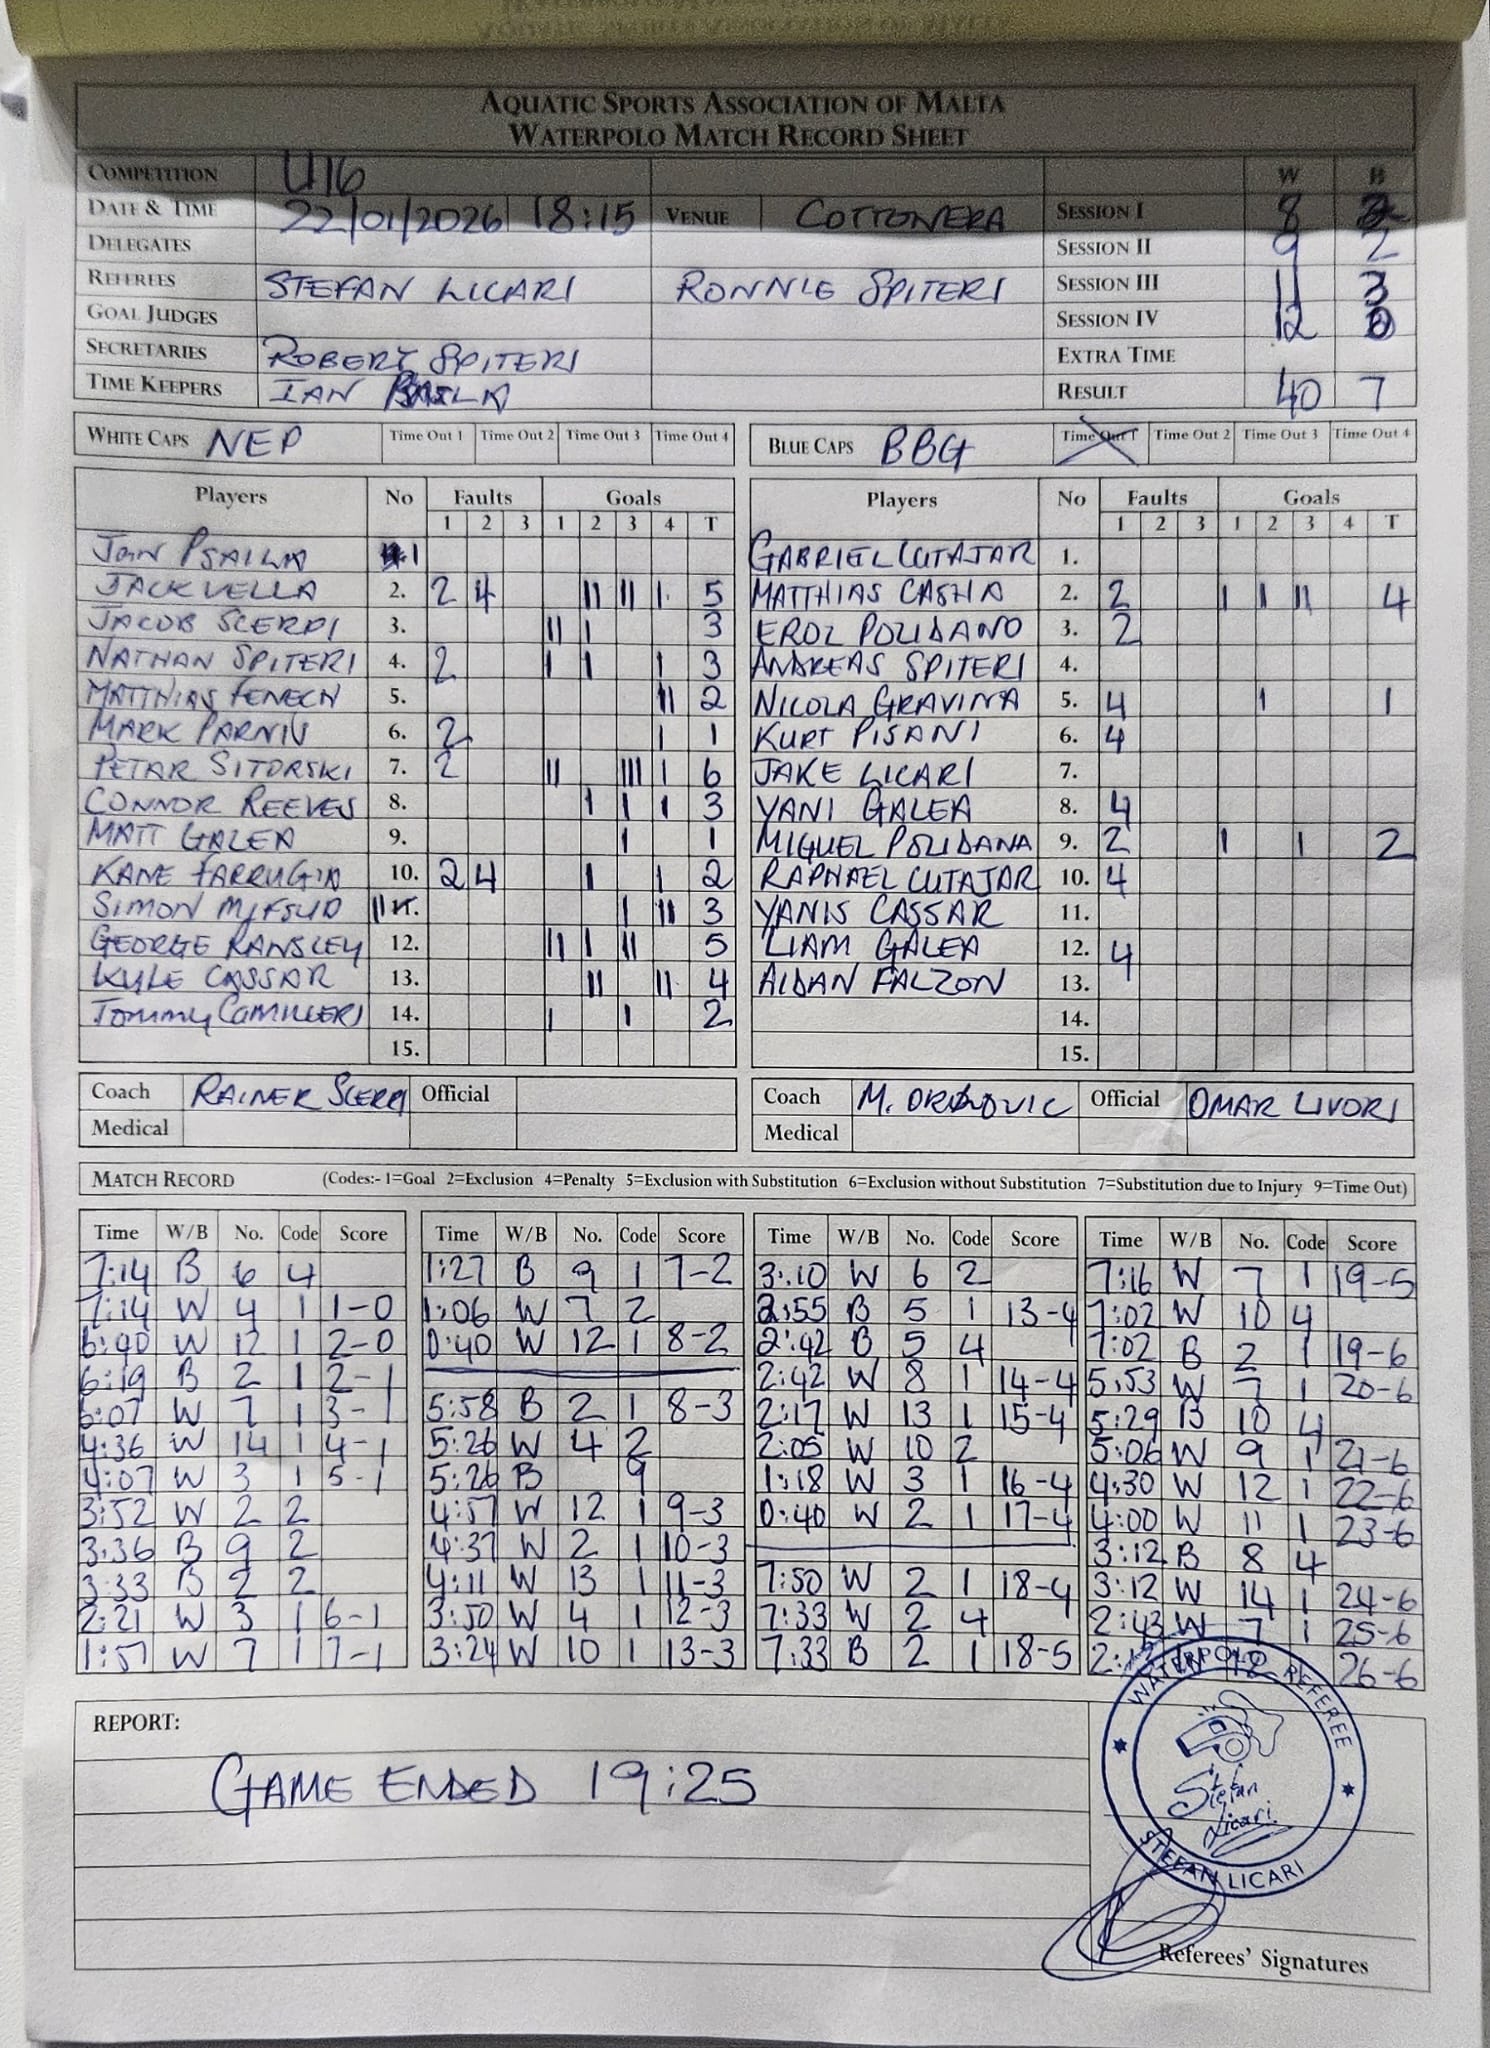 AQUATIC SPORTS ASSOCIATION OF MALTA
WATERPOLO MATCH RECORD SHEET
COMPETITION U16 W B
DATE & TIME 22/01/2026 18:15 VENUE COTTONERA SESSION I 8 2
DELEGATES SESSION II 9 2
REFEREES STEFAN LICARI RONNIE SPITERI SESSION III 11 3
GOAL JUDGES SESSION IV 12 0
SECRETARIES ROBERT SPITERI EXTRA TIME
TIME KEEPERS IAN RESULT 40 7
WHITE CAPS NEP Time Out 1 Time Out 2 Time Out 3 Time Out 4 BLUE CAPS BBG Time Out 1 Time Out 2 Time Out 3 Time Out 4
Players No Faults Goals Players No Faults Goals
1 2 3 1 2 3 4 T 1 2 3 1 2 3 4 T
JON PSAILA 1 GABRIEL CUTAJAR 1.
JACK VELLA 2. 2 4 II II I 5 MATTHIAS CASHA 2. 2 I I II 4
JACOB SCERRI 3. II I 3 EROL POLIDANO 3. 2
NATHAN SPITERI 4. 2 I I I 3 ANDREAS SPITERI 4.
MATTHIAS FENECH 5. II 2 NICOLA GRAVINA 5. 4 I 1
MARK PARNIS 6. 2 I 1 KURT PISANI 6. 4
PETAR SITORSKI 7. 2 II III I 6 JAKE LICARI 7.
CONNOR REEVES 8. I I I 3 YANI GALEA 8. 4
MATT GALEA 9. I 1 MIGUEL POLIDANA 9. 2 I I 2
KANE FARRUGIA 10. 2 4 I I 2 RAPHAEL CUTAJAR 10. 4
SIMON MIFSUD 11 I II 3 YANIS CASSAR 11.
GEORGE RANSLEY 12. II I II 5 LIAM GALEA 12. 4
KYLE CASSAR 13. II II 4 AIDAN FALZON 13.
TOMMY CAMILLERI 14. I I 2 14.
15. 15.
Coach RAINER SCERRI Official Coach M. Official OMAR LIVORI
Medical Medical
MATCH RECORD (Codes:- 1=Goal 2=Exclusion 4=Penalty 5=Exclusion with Substitution 6=Exclusion without Substitution 7=Substitution due to Injury 9=Time Out)
Time W/B No. Code Score Time W/B No. Code Score Time W/B No. Code Score Time W/B No. Code Score
7:14 B 6 4 1:27 B 9 1 7-2 3:10 W 6 2 7:16 W 7 1 19-5
7:14 W 4 1 1-0 1:06 W 7 2 2:55 B 5 1 13-4 7:02 W 10 4
6:40 W 12 1 2-0 0:40 W 12 1 8-2 2:42 B 5 4 7:02 B 2 1 19-6
6:19 B 2 1 2-1 2:42 W 8 1 14-4 5:53 W 7 1 20-6
6:07 W 7 1 3-1 5:58 B 2 1 8-3 2:17 W 13 1 15-4 5:29 B 10 4
4:36 W 14 1 4-1 5:26 W 4 2 2:05 W 10 2 5:06 W 9 1 21-6
4:07 W 3 1 5-1 5:26 B 9 1:18 W 3 1 16-4 4:30 W 12 1 22-6
3:52 W 2 2 4:57 W 12 1 9-3 0:40 W 2 1 17-4 4:00 W 11 1 23-6
3:36 B 9 2 4:37 W 2 1 10-3 3:12 B 8 4
3:33 B 2 2 4:11 W 13 1 11-3 7:50 W 2 1 18-4 3:12 W 14 1 24-6
2:21 W 3 1 6-1 3:50 W 4 1 12-3 7:33 W 2 4 2:43 W 7 1 25-6
1:57 W 7 1 7-1 3:24 W 10 1 13-3 7:33 B 2 1 18-5 26-6
REPORT:
GAME ENDED 19:25
WATERPOLO REFEREE
Stefan
Licari
STEFAN LICARI
Referees' Signatures